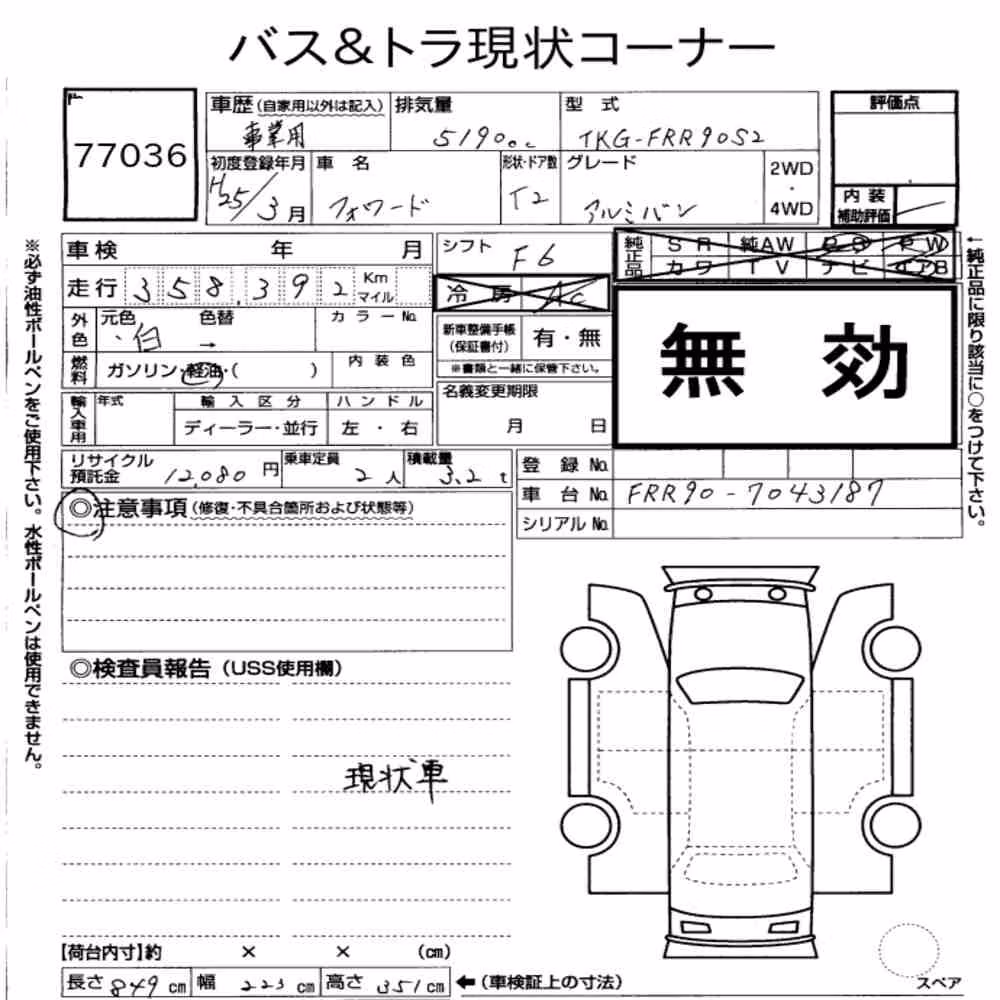 バス&トラ現状コーナー
77036
車歴(自家用以外は記入)
事業用
排気量
5190cc
型式
TKG-FRR90S2
評価点
初度登録年月
H25/3月
車名
フォワード
形状・ドア数
T2
グレード
アルミバン
2WD
・
4WD
内装
補助評価
※必ず油性ボールペンをご使用下さい。水性ボールペンは使用できません。
車検 年 月
シフト
F6
純正品
SR 純AW PS PW
カワ TV ナビ エアB
←純正品に限り該当に○をつけて下さい。
走行 358,392 Km マイル
冷房 AC
無効
外色
元色
・白
色替
→
カラーNo.
新車整備手帳
(保証書付)
有・無
※書類と一緒に保管下さい。
燃料
ガソリン・軽油・( )
内装色
名義変更期限
月 日
輸入車用
年式
輸入区分
ディーラー・並行
ハンドル
左・右
リサイクル
預託金
12,080円
乗車定員
2人
積載量
3.2t
登録No.
車台No. FRR90-7043187
シリアルNo.
◎注意事項(修復・不具合箇所および状態等)
◎検査員報告(USS使用欄)
現状車
【荷台内寸】約 × × (cm)
長さ849cm 幅223cm 高さ351cm ←(車検証上の寸法)
スペア